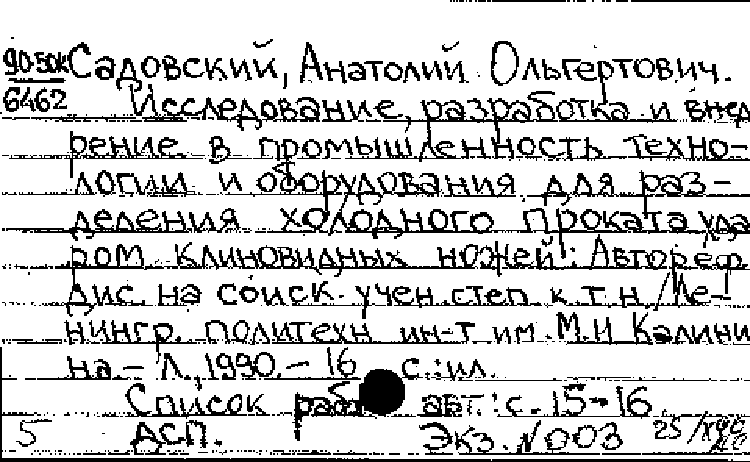 90-50к Садовский, Анатолий Ольгертович.
6462 Исследование, разработка и внед
рение в промышленность техно-
логии и оборудования для раз-
деления холодного проката уда
ром клиновидных ножей: Автореф
Дис. на соиск. учен. степ. к.т.н./Ле-
нингр. политехн. ин-т им. М.И Калини
на.- Л., 1990.- 16 с.:ил.
Список работ авт.: с. 15-16.
5 ДСП. Экз. N 003 25/